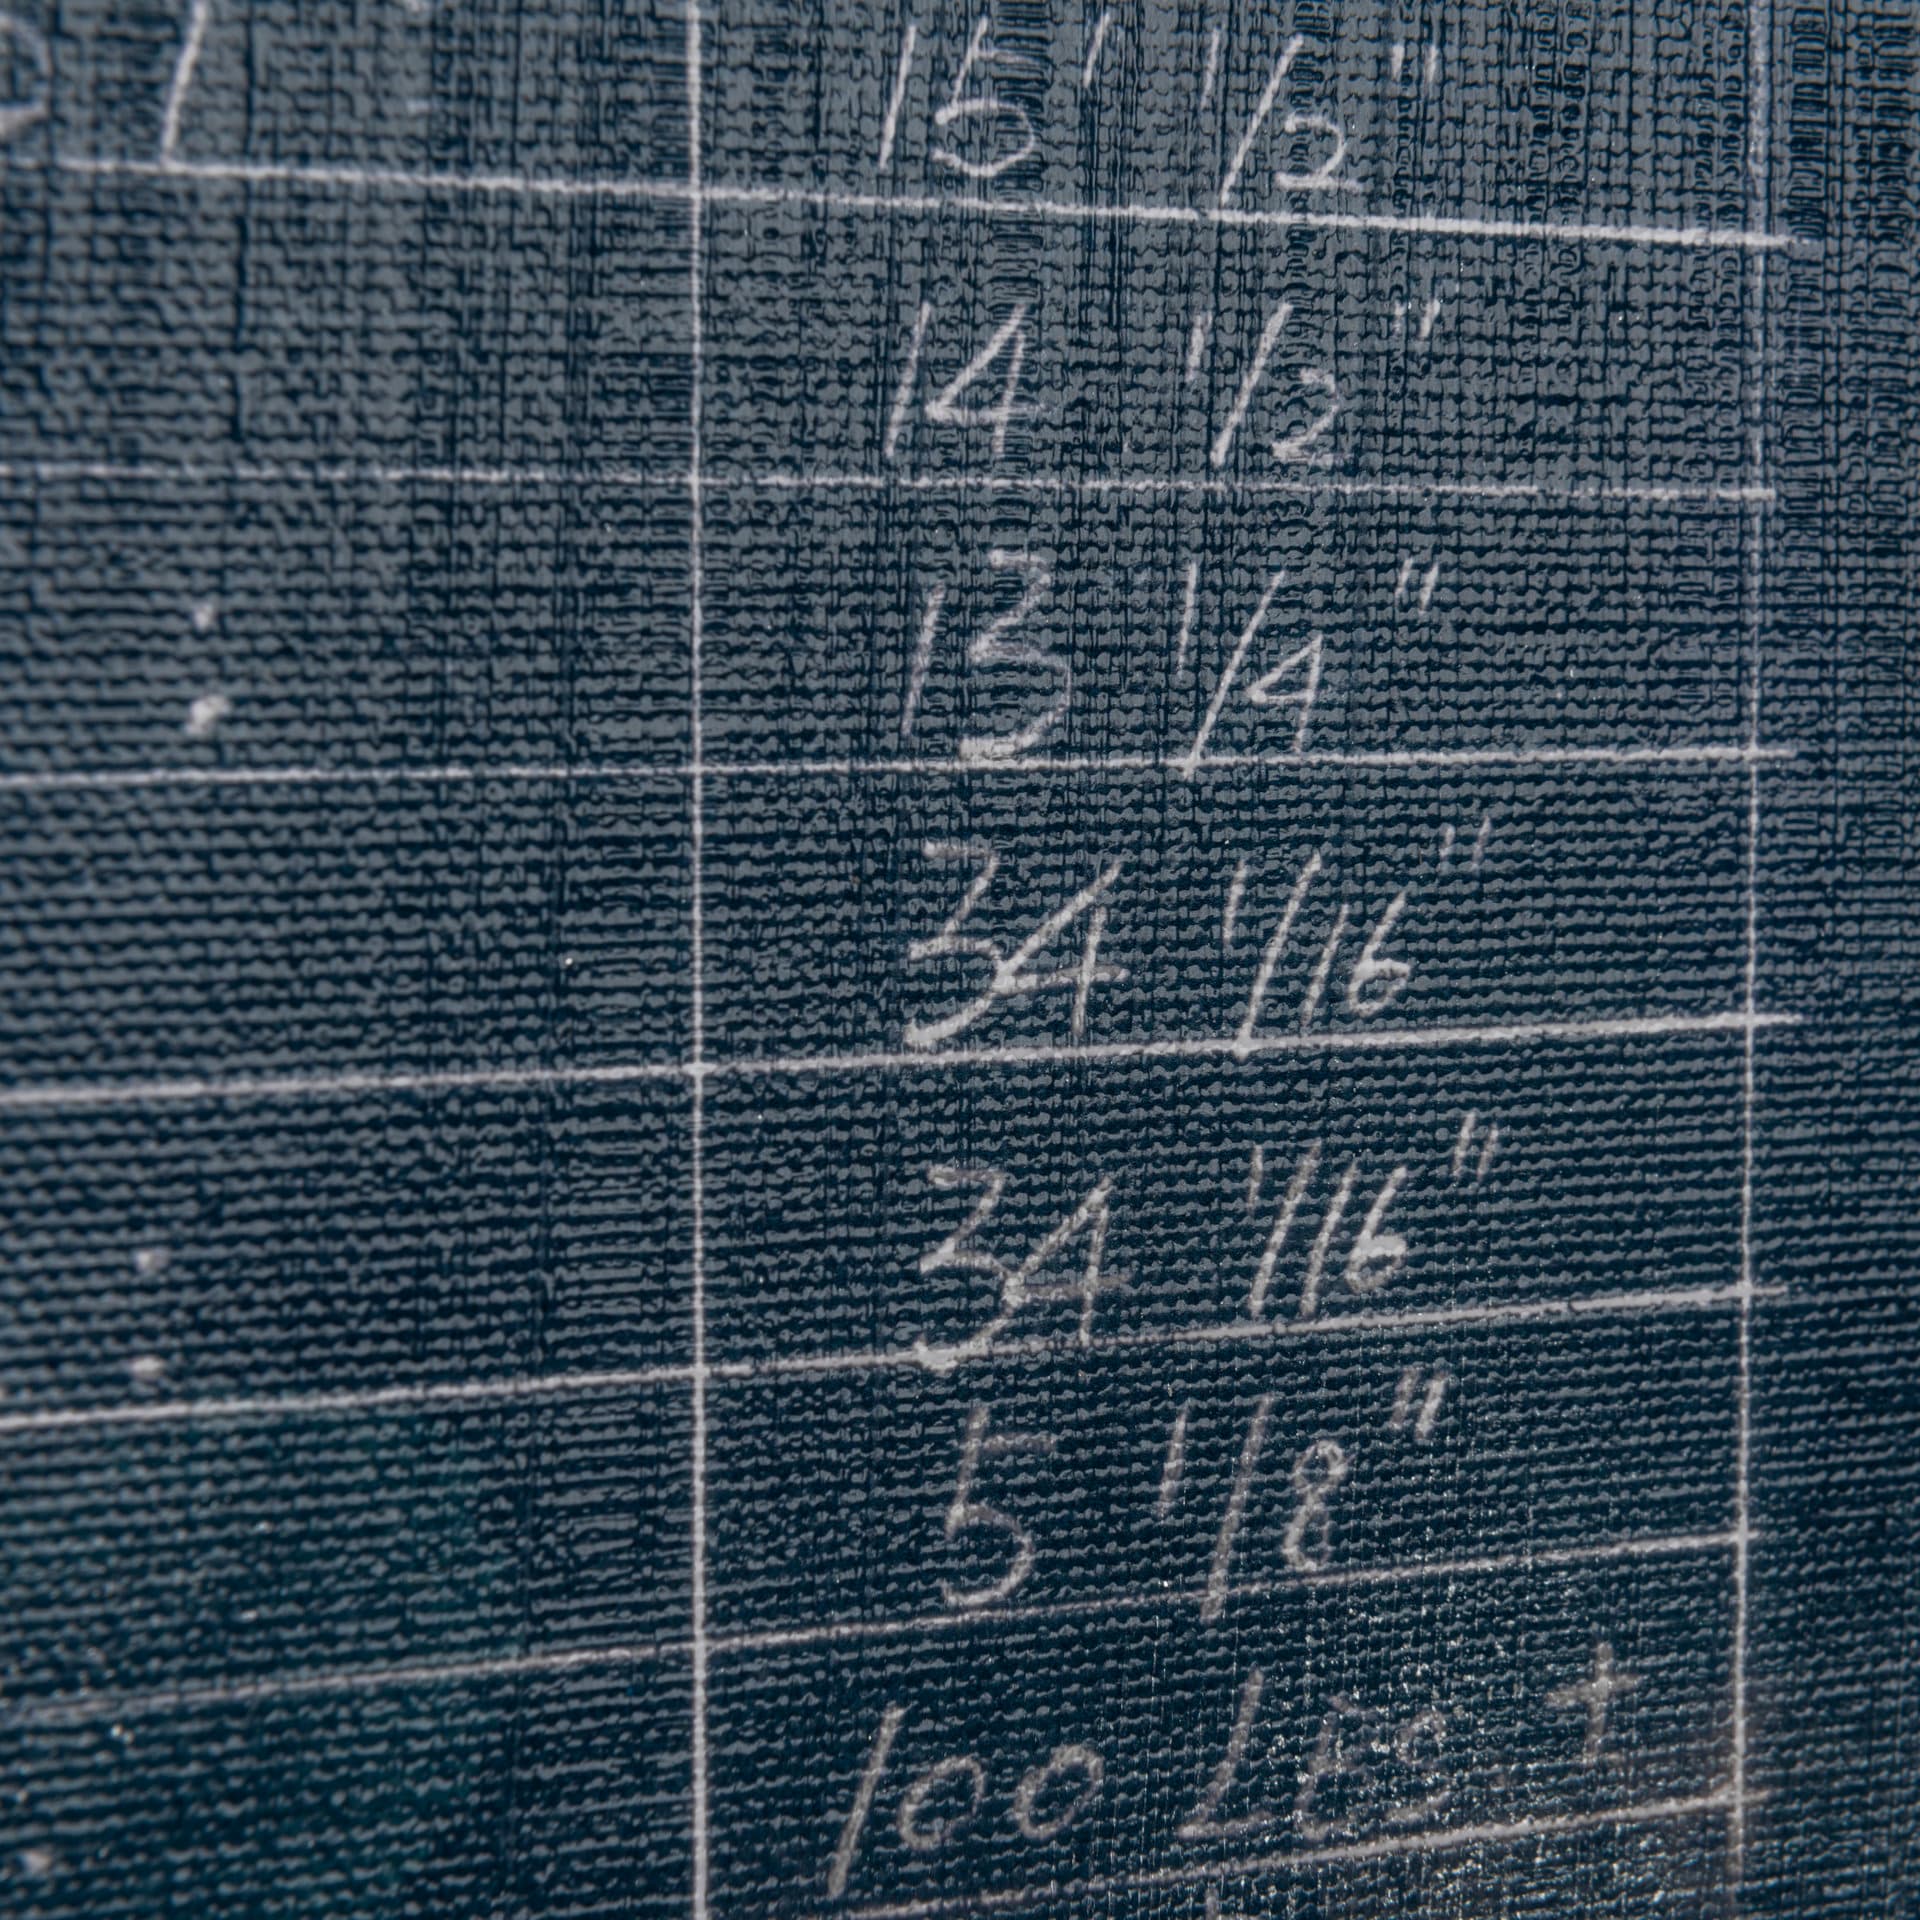 15' 1/2"
14 1/2"
13 1/4"
34 1/16"
34 1/16"
5 1/8"
100 Lbs +